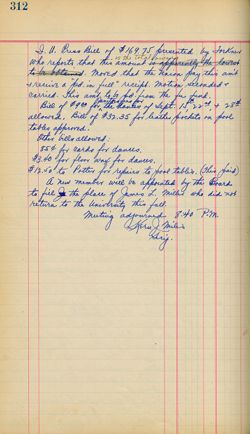 312
I. U. Press Bill of $169.75 presented by Jordan
is the total owing
who reports that this amount is apparently the lowest
to be obtained. Moved that the Union pay this amt
& receive a "pd. in full" receipt. Motion seconded &
carried. This amt. to be pd. from the fund.
Bill of $9.90 for the dances of Sept. 15th, 22nd, & 28th
allowed. Bill of $37.35 for leather pockets on pool
tables approved.
Other bills allowed:
85¢ for cards for dances.
$3.60 for floor wax for dances.
$13.50 to Potter for repairs to pool tables. (This paid)
A new member will be appointed by the Board
to fill the place of James L. Miller who did not
return to the University this fall.
Meeting adjourned 8:40 P.M.